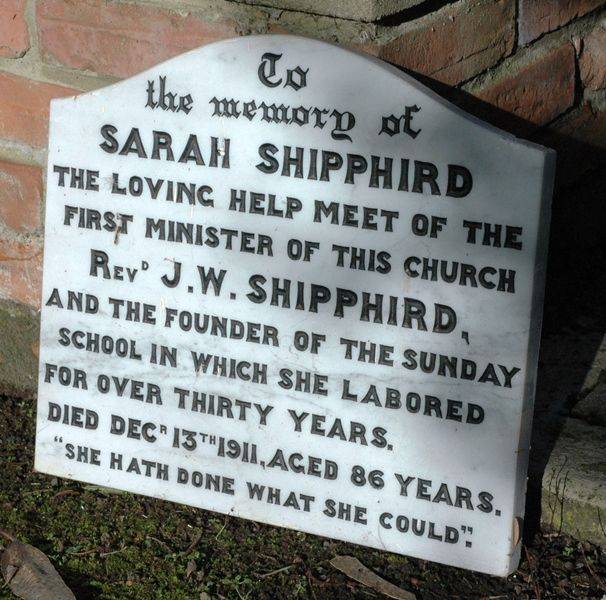 To
the memory of
SARAH SHIPPHIRD
THE LOVING HELP MEET OF THE
FIRST MINISTER OF THIS CHURCH
REVD J.W. SHIPPHIRD,
AND THE FOUNDER OF THE SUNDAY
SCHOOL IN WHICH SHE LABORED
FOR OVER THIRTY YEARS.
DIED DECR 13TH 1911, AGED 86 YEARS.
"SHE HATH DONE WHAT SHE COULD".